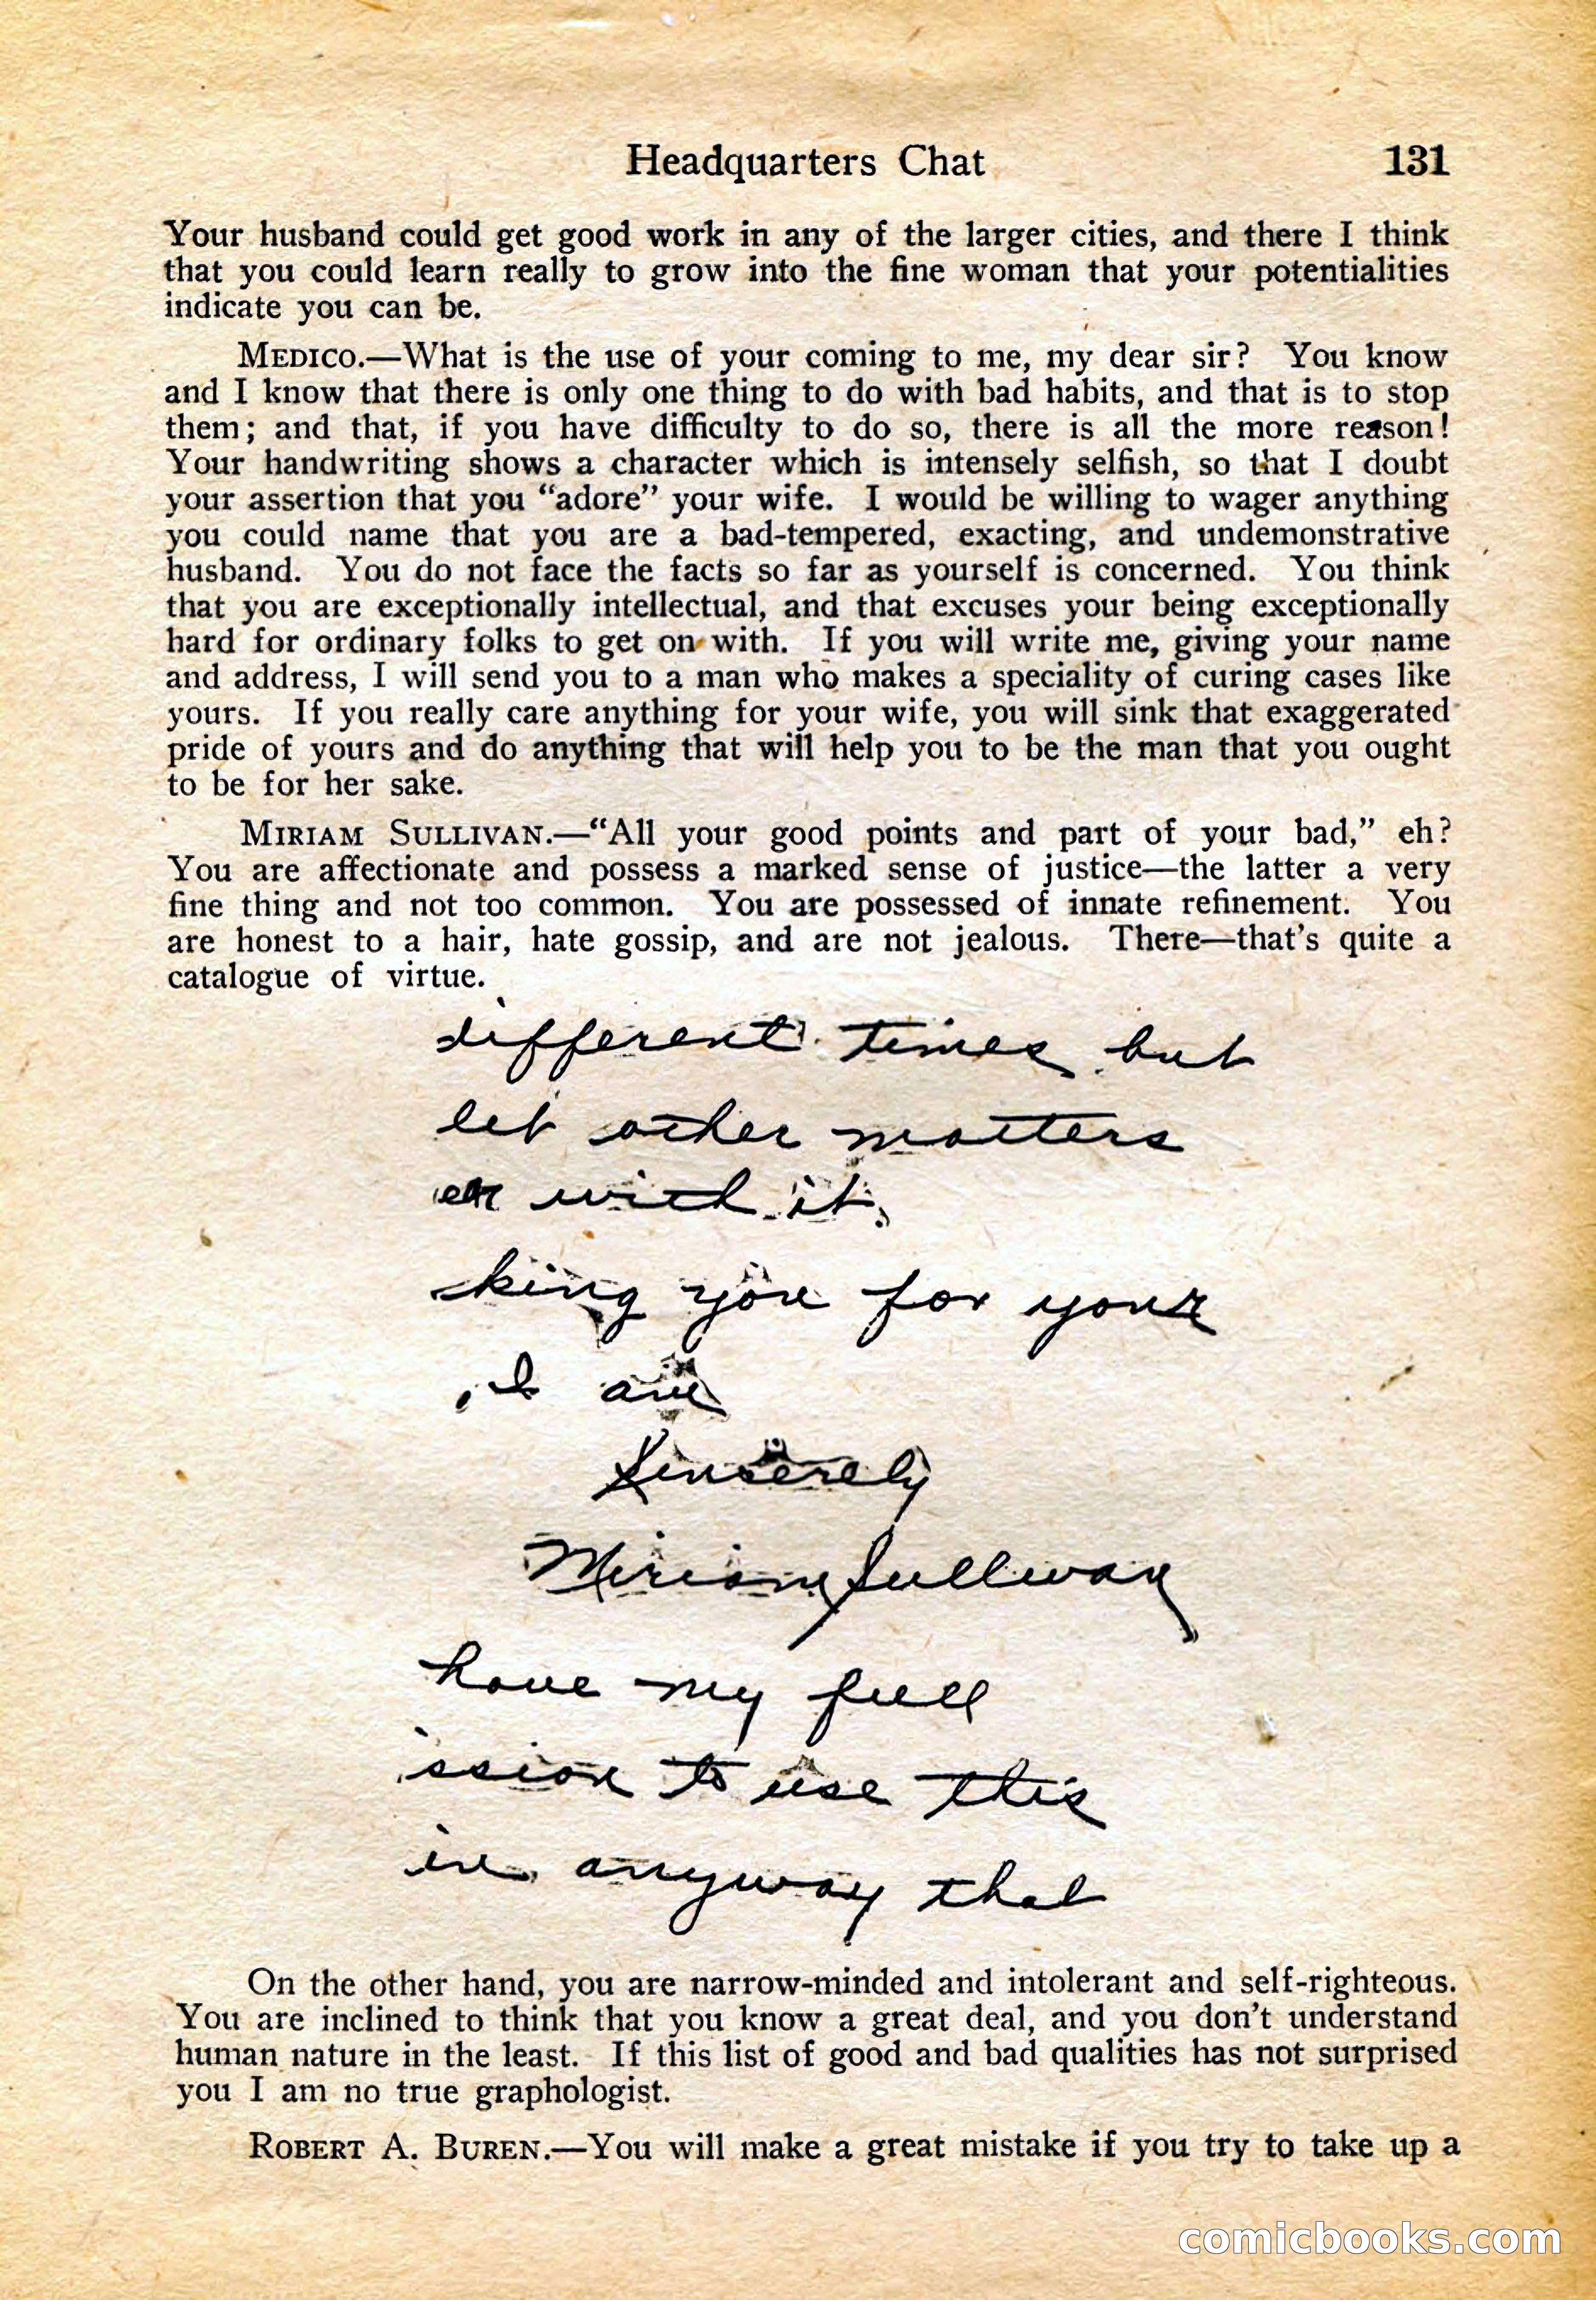 Headquarters Chat 131
Your husband could get good work in any of the larger cities, and there I think
that you could learn really to grow into the fine woman that your potentialities
indicate you can be.
MEDICO.—What is the use of your coming to me, my dear sir? You know
and I know that there is only one thing to do with bad habits, and that is to stop
them; and that, if you have difficulty to do so, there is all the more reason!
Your handwriting shows a character which is intensely selfish, so that I doubt
your assertion that you “adore” your wife. I would be willing to wager anything
you could name that you are a bad-tempered, exacting, and undemonstrative
husband. You do not face the facts so far as yourself is concerned. You think
that you are exceptionally intellectual, and that excuses your being exceptionally
hard for ordinary folks to get on with. If you will write me, giving your name
and address, I will send you to a man who makes a speciality of curing cases like
yours. If you really care anything for your wife, you will sink that exaggerated
pride of yours and do anything that will help you to be the man that you ought
to be for her sake.
MIRIAM SULLIVAN.—“All your good points and part of your bad,” eh?
You are affectionate and possess a marked sense of justice—the latter a very
fine thing and not too common. You are possessed of innate refinement. You
are honest to a hair, hate gossip, and are not jealous. There—that’s quite a
catalogue of virtue.
different times but
let other matters
with it.
king you for your
, I am
Sincerely
Miriam Sullivan
have my full
ission to use this
in anyway that
On the other hand, you are narrow-minded and intolerant and self-righteous.
You are inclined to think that you know a great deal, and you don’t understand
human nature in the least. If this list of good and bad qualities has not surprised
you I am no true graphologist.
ROBERT A. BUREN.—You will make a great mistake if you try to take up a
comicbooks.com